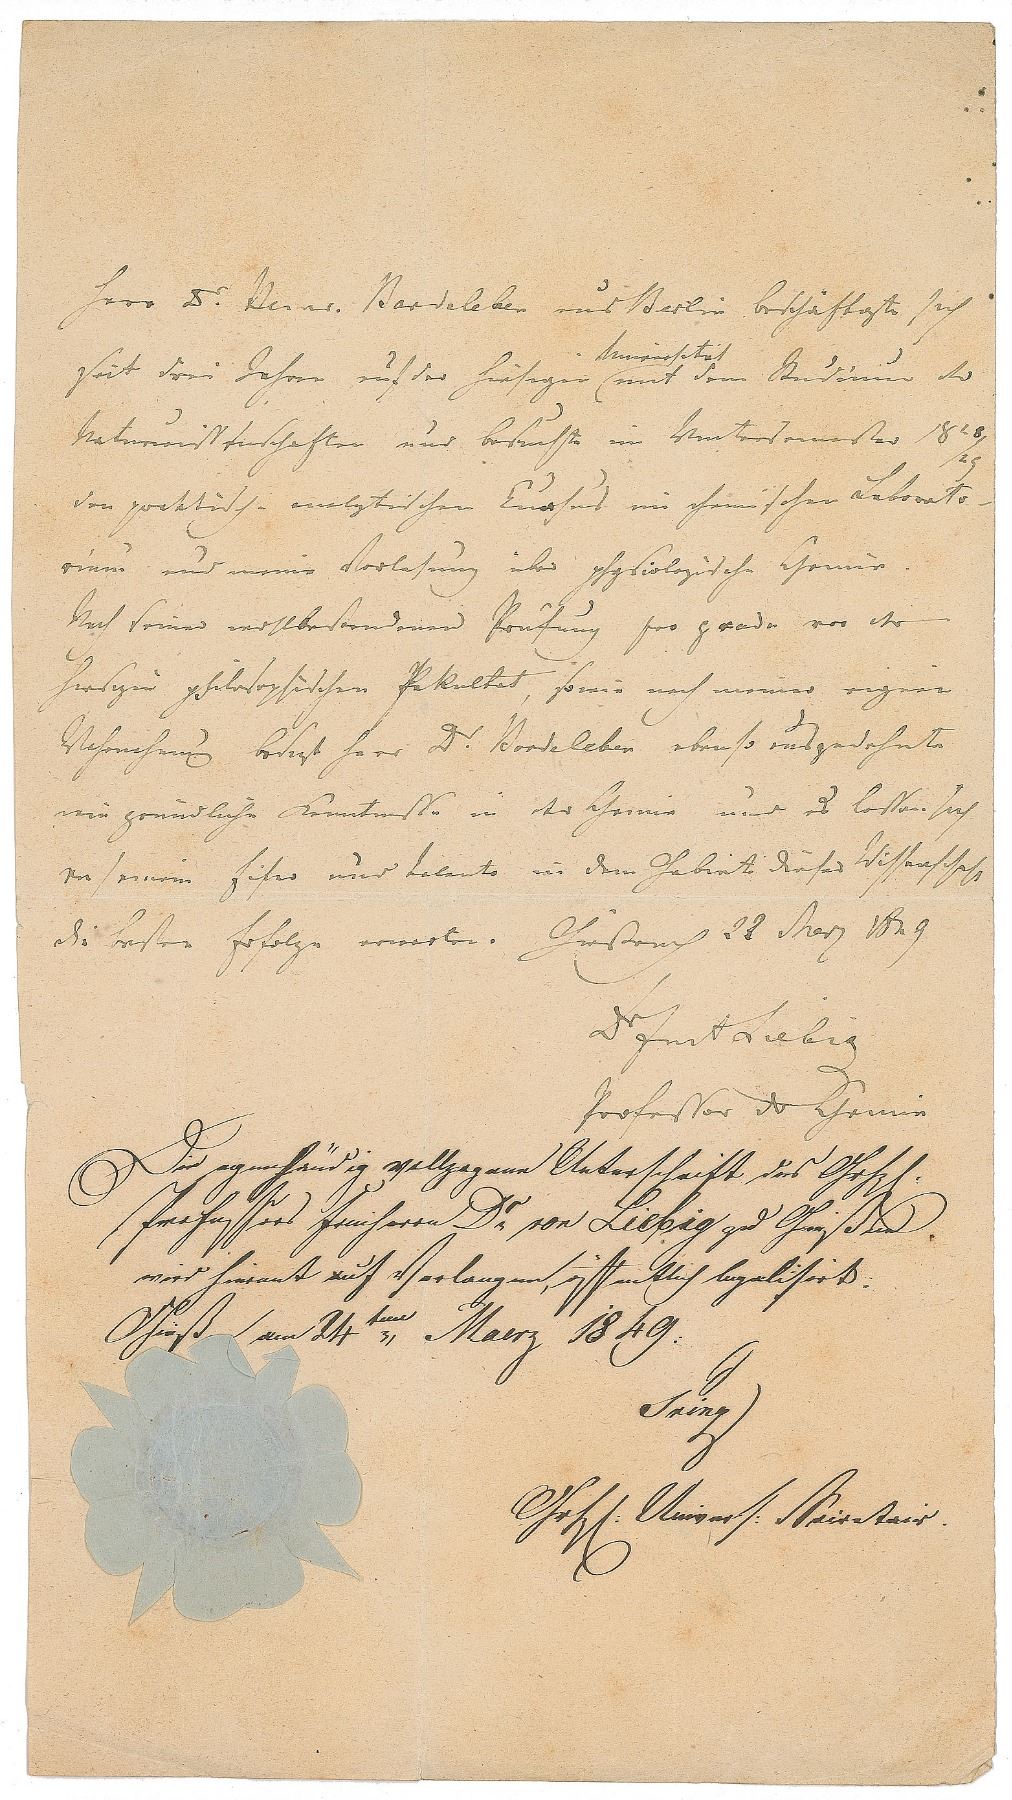 Herr Dr. Werner. Bardeleben aus Berlin beschäftigte sich
seit drei Jahren auf der hiesigen Universität mit dem Studium der
Naturwissenschaften und besuchte im Wintersemester 1848/49
den praktisch-analytischen Cursus im chemischen Laborato-
rium und meine Vorlesung über physiologische Chemie.
Nach seiner wohlbestandenen Prüfung pro gradu vor der
hiesigen philosophischen Fakultät, sowie nach meiner eignen
besizt Herr Dr. Bardeleben ebenso ausgedehnte
wie gründliche Kenntnisse in der Chemie und es lassen sich
von seinem Eifer und Talente in dem Gebiete dieser Wissenschaft
die besten Erfolge erwarten. 22 März 1849
Dr Just Liebig
Professor der Chemie
Die eigenhändig vollzogene Unterschrift des Grhzl.
Professors Freiherrn Dr. von Liebig zu Gießen
wird hiermit auf Verlangen öffentlich legalisirt.
Gieß am 24ten Maerz 1849.
Grhzl. Univers. Secretair.